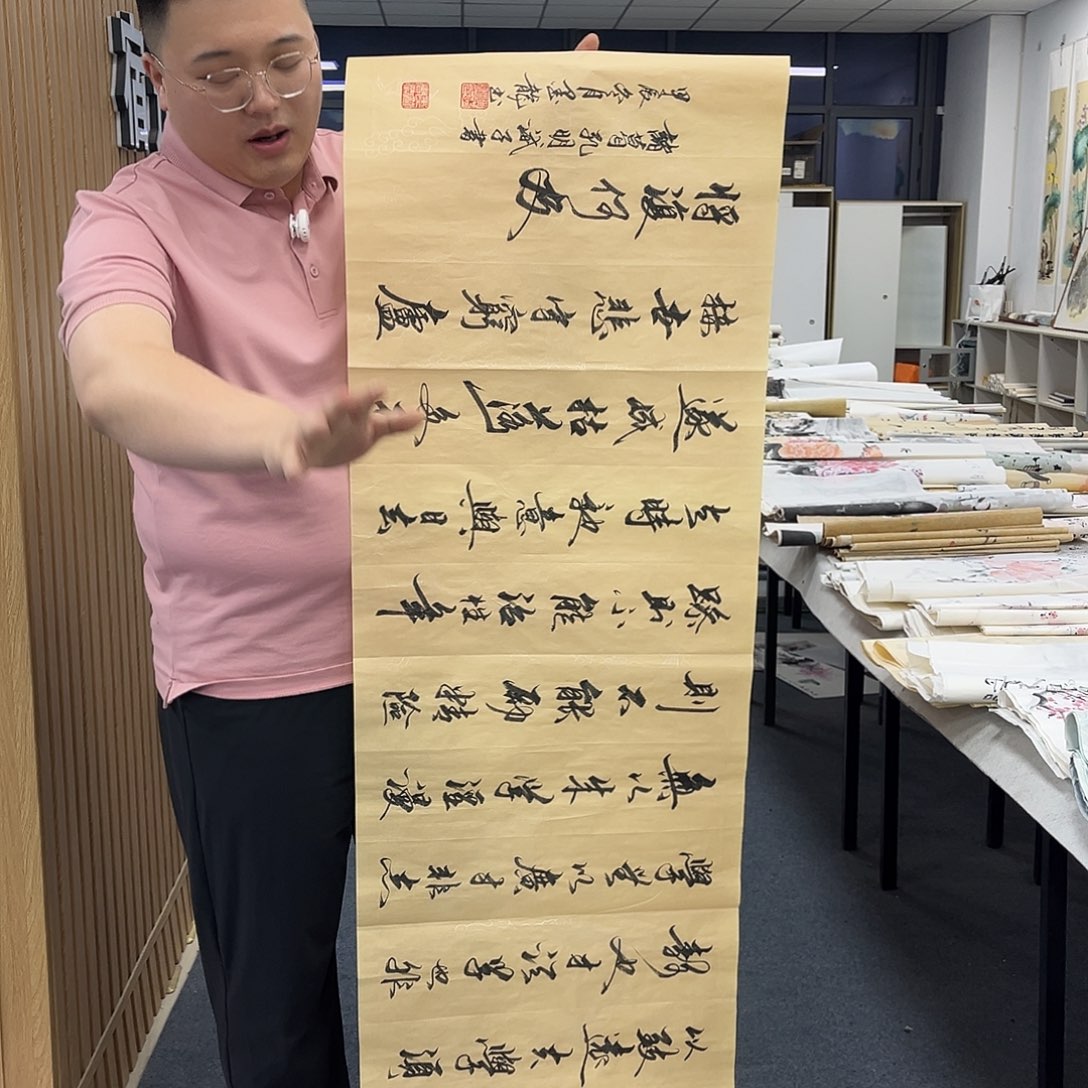 以致遠夫學須
靜也才須學也非
學無以廣才非志
無以成學淫慢
則不能勵精險
躁則不能治性年
与時馳意與日去
遂成枯落多
接世悲守窮廬
將復何及
諸葛孔明誡子書
甲辰冬月墨龍书